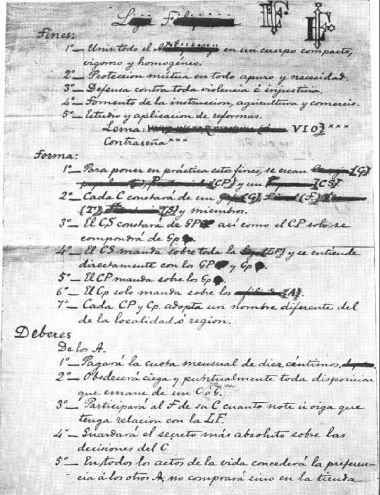 Liga Filipina
LF LF
Fines:
1º_ Unir todo el Archipiélago en un cuerpo compacto,
vigoroso y homogéneo.
2º_ Proteccion mutua en todo apuro y necesidad.
3º_ Defensa contra toda violencia é injusticia.
4º_ Fomento de la instruccion, agricultura y comercio.
5º_ Estudio y aplicacion de reformas.
Lema: VIO) ***
Contraseña ***
Forma:
1º_ Para poner en práctica estos fines, se crean (Gp)
(CP) y un (CS)
2º_ Cada C constará de un (G) (F)
(T), (S) y miembros.
3º_ El CS constará de GP así como el CP solo se
compondrá de Gp.
4º_ El CS manda sobre toda la (LF) y se entiende
directamente con los GP y Gp.
5º_ El CP manda sobre los Gp.
6º_ El Gp solo manda sobre los (A).
7º_ Cada CP y Cp. adopta un nombre diferente del
de la localidad ó region.
Deberes
De los A.
1º_ Pagará la cuota mensual de diez céntimos,
2º_ Obedecerá ciega y puntualmente toda disposicion
que emane de un C ó G.
3º_ Participará al F de su C cuanto note ú oiga que
tenga relacion con la LF.
4º_ Guardará el secreto más absoluto sobre las
decisiones del C.
5º_ En todos los actos de la vida concederá la preferen-
cia á los otros A; no comprará sino en la tienda